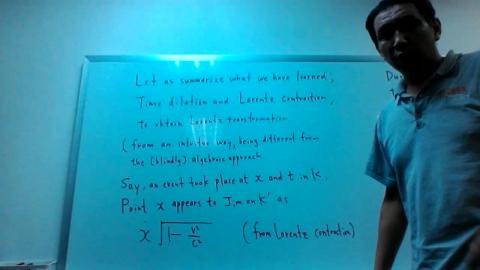 Let as summarize what we have learned;
Time dilation and Lorentz contraition,
to obtain Lorentz transformation
(from an intuitive way, being different from
the (blindly) algebraic approach
Say, an event took place at x and t in K.
Point x appears to J,m on K' as
x √(1 - v²/c²) (from Lorentz contraction)
Du